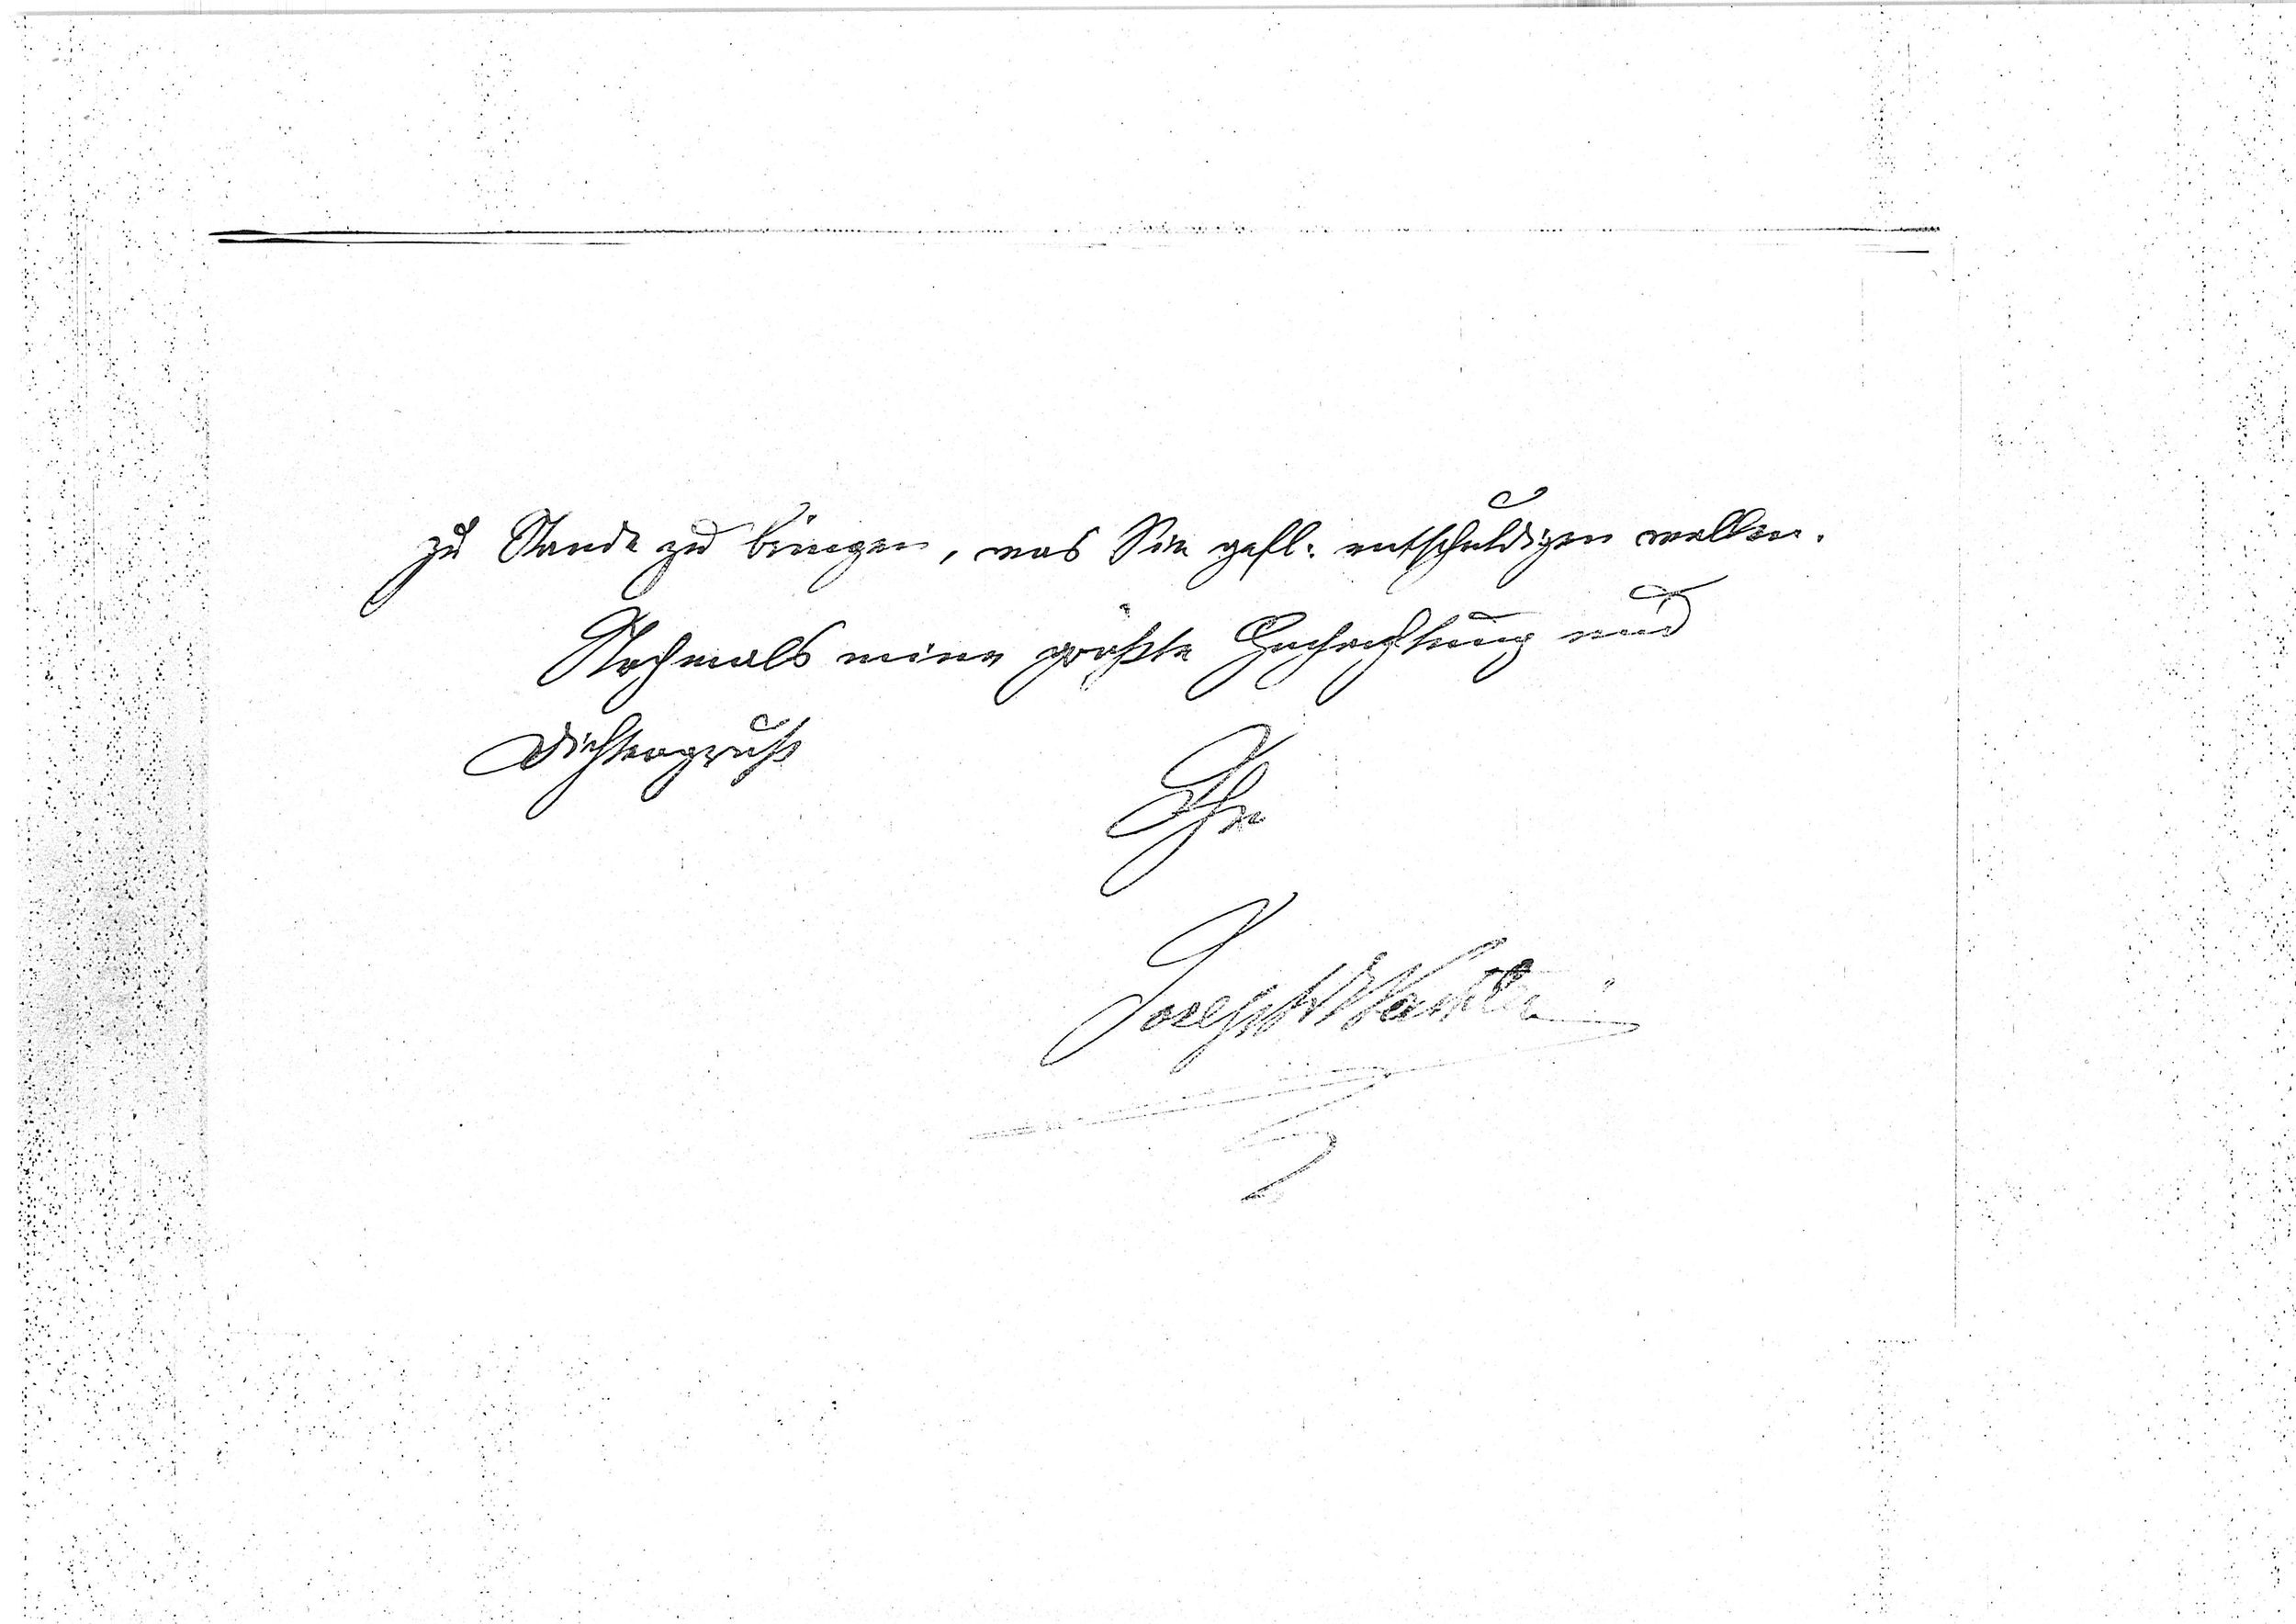 zu Stande zu bringen, was Sie gefl. entschuldigen wollen.
Nochmals meine größte Hochachtung und
Dichtergruß
Ihr
Joseph